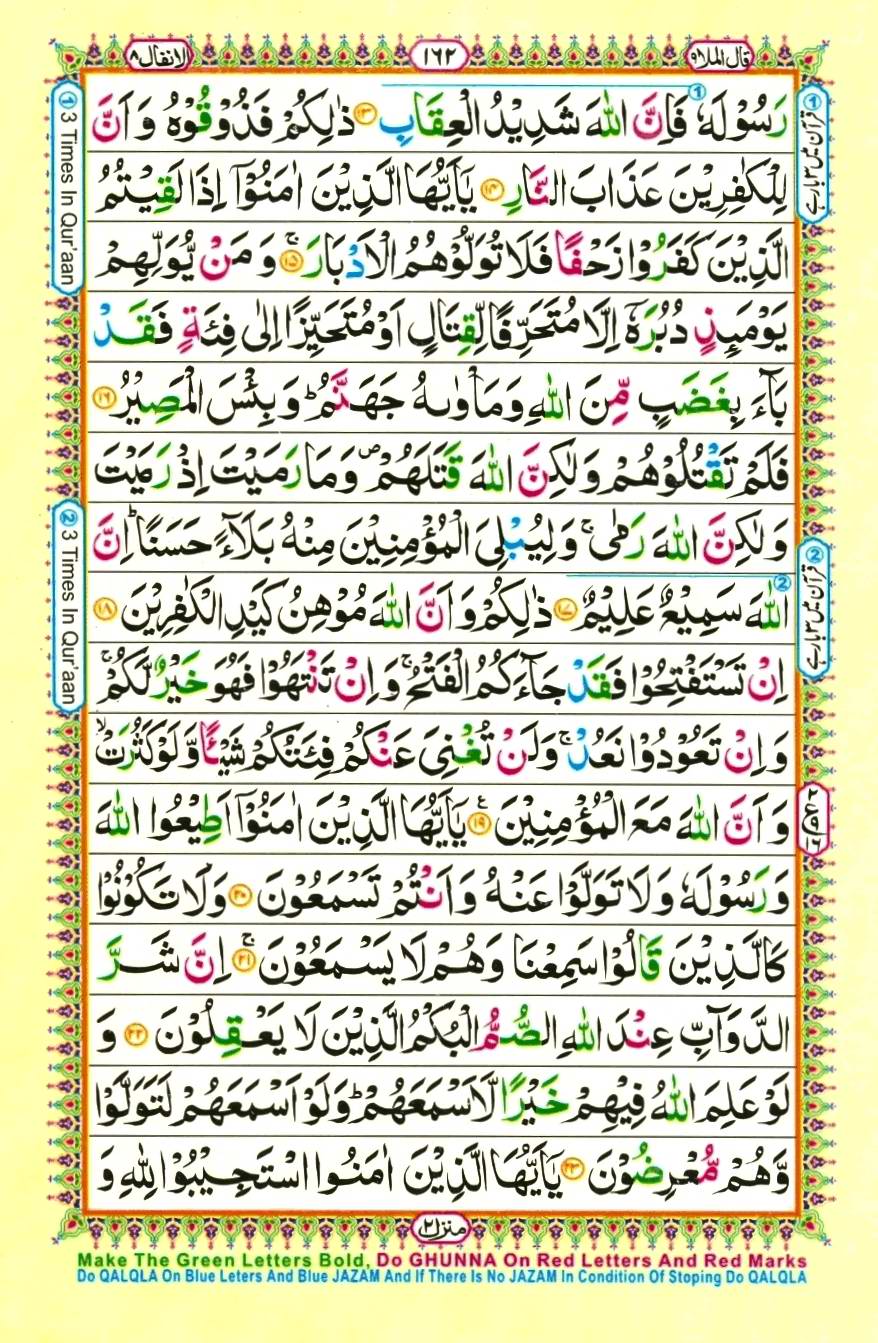 قال الملا۹
۱۶۲
الانفال۸
رَسُوْلَهٗ فَاِنَّ اللّٰهَ شَدِيْدُ الْعِقَابِ ۱۳ ذٰلِكُمْ فَذُوْقُوْهُ وَ اَنَّ
لِلْكٰفِرِيْنَ عَذَابَ النَّارِ ۱۴ يٰۤاَيُّهَا الَّذِيْنَ اٰمَنُوْۤا اِذَا لَقِيْتُمُ
الَّذِيْنَ كَفَرُوْا زَحْفًا فَلَا تُوَلُّوْهُمُ الْاَدْبَارَ ۚ ۱۵ وَ مَنْ يُّوَلِّهِمْ
يَوْمَىِٕذٍ دُبُرَهٗۤ اِلَّا مُتَحَرِّفًا لِّقِتَالٍ اَوْ مُتَحَيِّزًا اِلٰى فِئَةٍ فَقَدْ
بَآءَ بِغَضَبٍ مِّنَ اللّٰهِ وَ مَاْوٰىهُ جَهَنَّمُ ؕ وَ بِئْسَ الْمَصِيْرُ ۱۶
فَلَمْ تَقْتُلُوْهُمْ وَ لٰكِنَّ اللّٰهَ قَتَلَهُمْ ۪ وَ مَا رَمَيْتَ اِذْ رَمَيْتَ
وَ لٰكِنَّ اللّٰهَ رَمٰى ۚ وَ لِيُبْلِىَ الْمُؤْمِنِيْنَ مِنْهُ بَلَآءً حَسَنًا ؕ اِنَّ
اللّٰهَ سَمِيْعٌ عَلِيْمٌ ۱۷ ذٰلِكُمْ وَ اَنَّ اللّٰهَ مُوْهِنُ كَيْدِ الْكٰفِرِيْنَ ۱۸
اِنْ تَسْتَفْتِحُوْا فَقَدْ جَآءَكُمُ الْفَتْحُ ۚ وَ اِنْ تَنْتَهُوْا فَهُوَ خَيْرٌ لَّكُمْ ۚ
وَ اِنْ تَعُوْدُوْا نَعُدْ ۚ وَ لَنْ تُغْنِىَ عَنْكُمْ فِئَتُكُمْ شَيْـًٔا وَّ لَوْ كَثُرَتْ ۙ
وَ اَنَّ اللّٰهَ مَعَ الْمُؤْمِنِيْنَ ۱۹ ع يٰۤاَيُّهَا الَّذِيْنَ اٰمَنُوْۤا اَطِيْعُوا اللّٰهَ
وَ رَسُوْلَهٗ وَ لَا تَوَلَّوْا عَنْهُ وَ اَنْتُمْ تَسْمَعُوْنَ ۲۰ وَ لَا تَكُوْنُوْا
كَالَّذِيْنَ قَالُوْا سَمِعْنَا وَ هُمْ لَا يَسْمَعُوْنَ ۚ ۲۱ اِنَّ شَرَّ
الدَّوَآبِّ عِنْدَ اللّٰهِ الصُّمُّ الْبُكْمُ الَّذِيْنَ لَا يَعْقِلُوْنَ ۲۲ وَ
لَوْ عَلِمَ اللّٰهُ فِيْهِمْ خَيْرًا لَّاَسْمَعَهُمْ ؕ وَ لَوْ اَسْمَعَهُمْ لَتَوَلَّوْا
وَّ هُمْ مُّعْرِضُوْنَ ۲۳ يٰۤاَيُّهَا الَّذِيْنَ اٰمَنُوا اسْتَجِيْبُوْا لِلّٰهِ وَ
① قرآن میں ۳ بار ہے
② قرآن میں ۳ بار ہے
① 3 Times In Qur'aan
② 3 Times In Qur'aan
منزل۲
Make The Green Letters Bold, Do GHUNNA On Red Letters And Red Marks
Do QALQLA On Blue Leters And Blue JAZAM And If There Is No JAZAM In Condition Of Stoping Do QALQLA